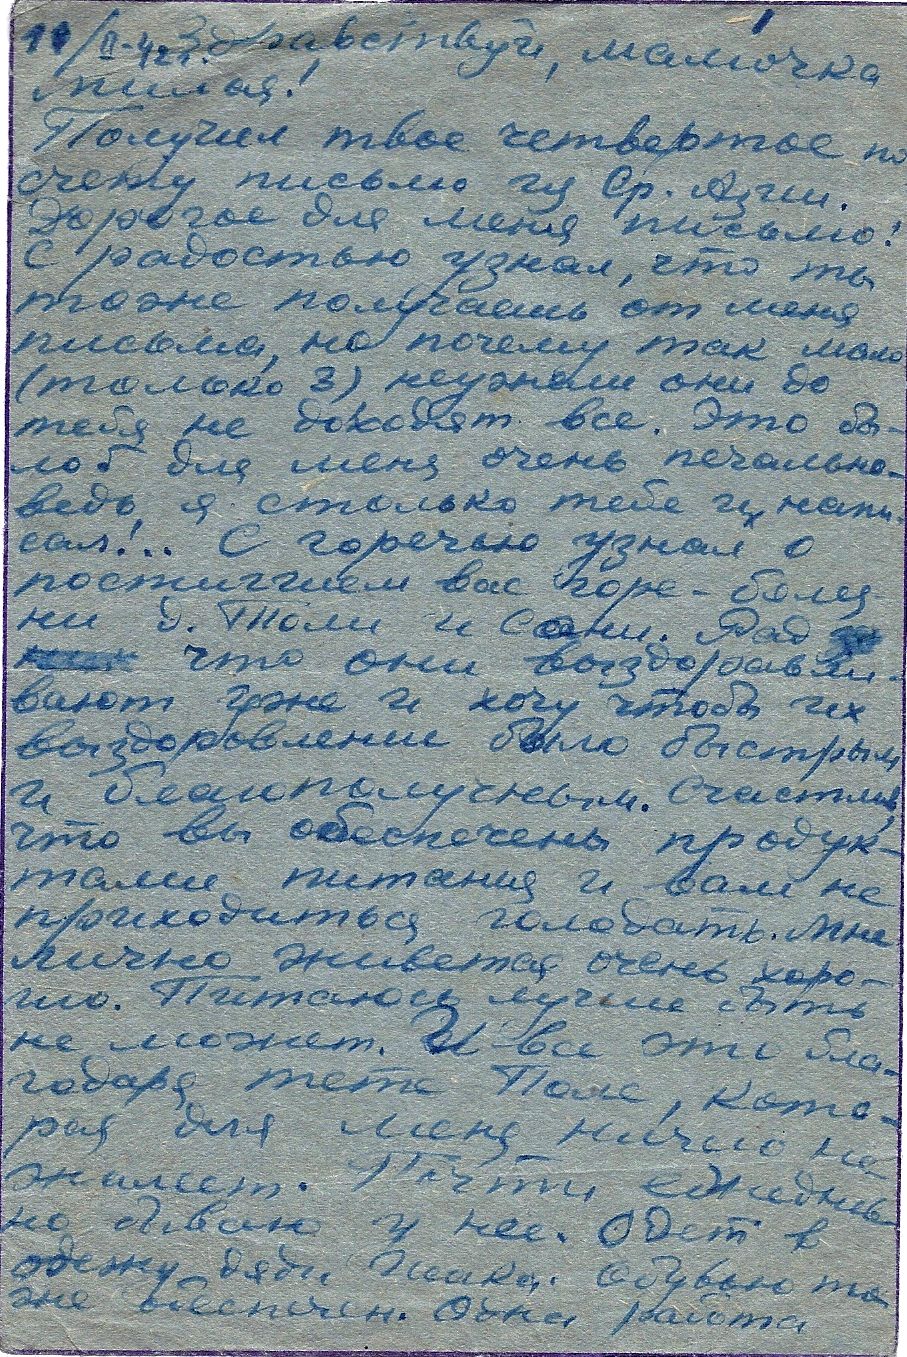 11/II-42г. Здравствуй, мамочка
милая!
Получил твое четвертое по
счету письмо из Ср. Азии.
Дорогое для меня письмо!
С радостью узнал, что ты
тоже получаешь от меня
письма, но почему так мало
(только 3) неужели они до
тебя не доходят все. Это бы-
лоб для меня очень печально-
ведь я столько тебе их напи-
сал!.. С горечью узнал о
постигшем вас горе - болез
ни д. Толи и Сани. Рад
что они выздоравли-
вают уже и хочу чтобы их
выздоровлении было быстрым
и благополучным. Счастлив,
что вы обеспечены продук-
тами питания и вам не
приходиться голодать. Мне
лично живется очень хоро-
шо. Питаюсь лучше быть
не может. И все это бла-
годаря тете Поле, кото-
рая для меня ничего не
жалеет. Почти ежеднев-
но бываю у нее. Одет в
одежу дяди Исака. Обувью то
же обеспечен. Одна работа